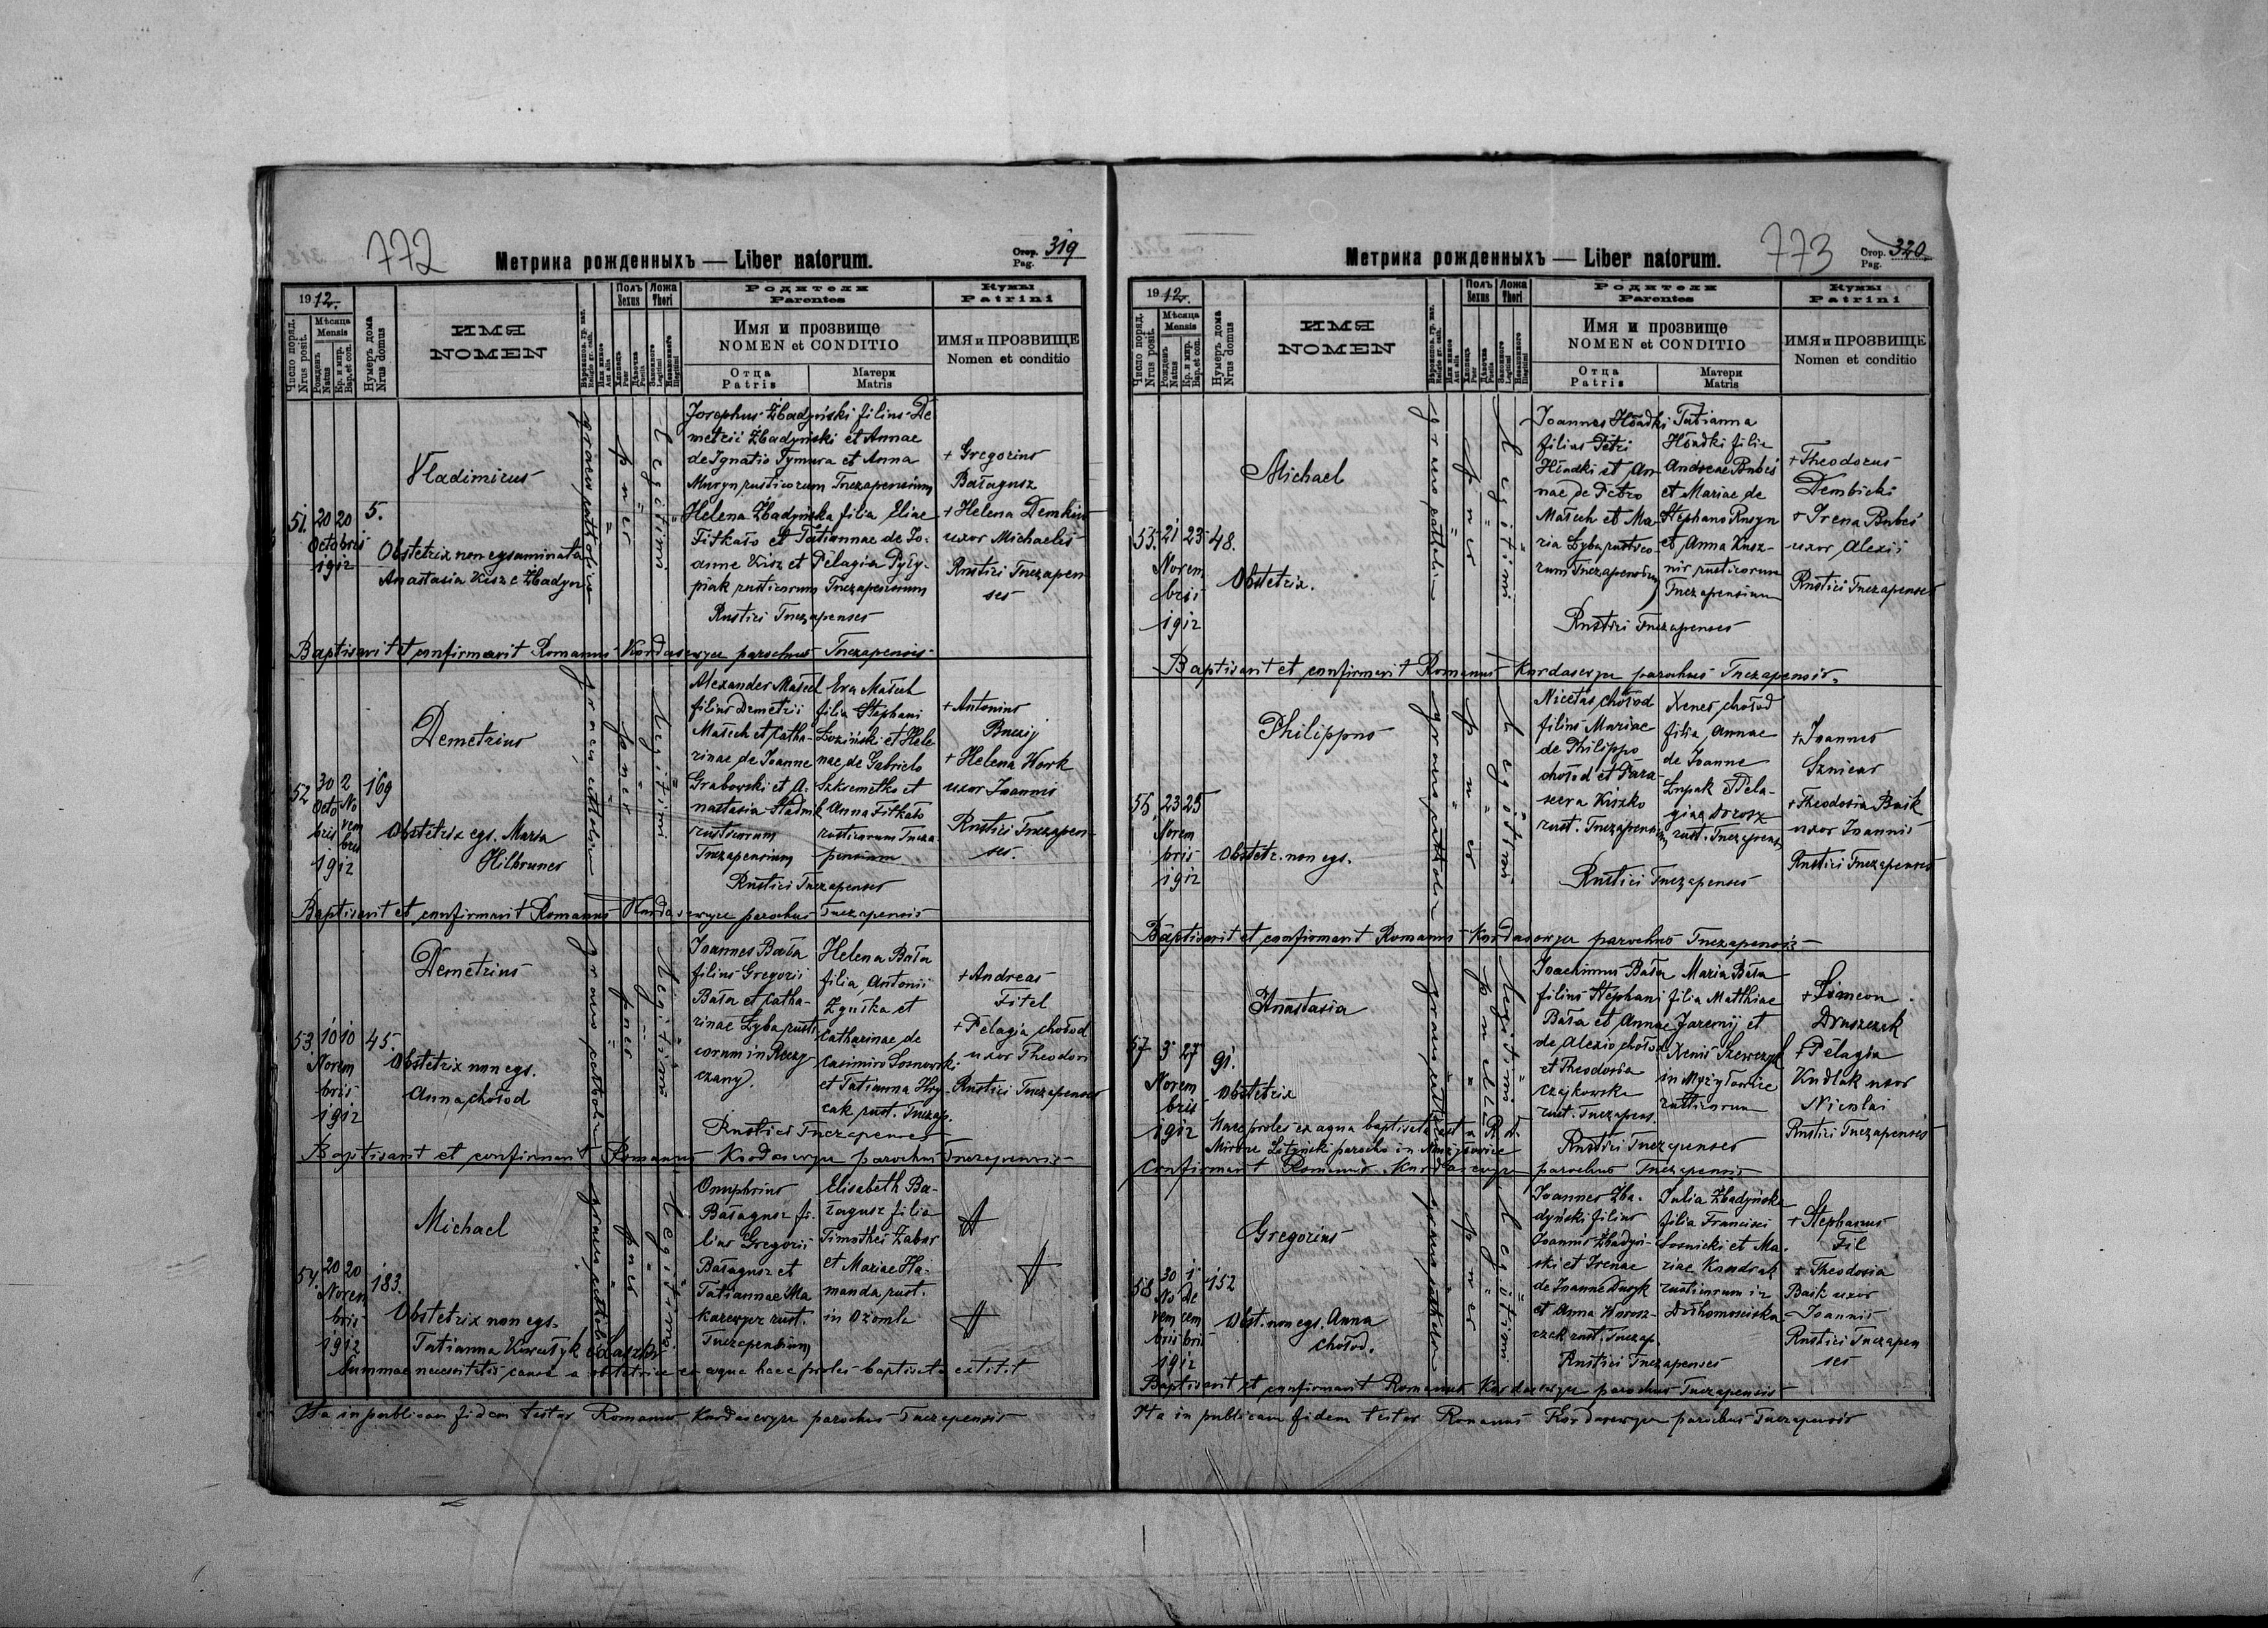 772
Метрика рожденныхъ — Liber natorum.
Стор. Pag. 319
1912.
Число поряд. Nrus posit.
Мѣсяца Mensis
Рожденъ Natus
Кр. и мир. Bap. et con.
Нумеръ дома Nrus domus
ИМЯ
NOMEN
Полъ Sexus
Ложа Thori
Родители
Parentes
Имя и прозвище
NOMEN et CONDITIO
Отца Patris
Матери Matris
Кумы
Patrini
ИМЯ и ПРОЗВИЩЕ
Nomen et conditio
51. 20 20 Octobris 1912
5.
Vladimirus
Obstetrix non egsaminata
Anastasia Kisz e Zbadyn
graeco catholica
puer
legitimi
Josephus Żbadyński filius De
metrii Żbadyński et Annae
de Ignatio Tymura et Anna
Muryn rusticorum Tuczapensium
Helena Żbadyńska filia Eliae
Fitkało et Tatiannae de Jo-
anne Kisz et Pelagia Pyły-
piak rusticorum Tuczapensium
Rustici Tuczapenses
+ Gregorius
Bałagusz
+ Helena Demkiw
uxor Michaelis
Rustici Tuczapen
ses
Baptisavit et confirmavit Romanus Kordasewycz parochus Tuczapensis
52 30 Octobris 2 Novembris 1912
169
Demetrius
Obstetrix egs. Maria
Hilbruner
puer
legitimi
Alexander Małech
filius Demetrii
Małech et Catha-
rinae de Joanne
Grabowski et A-
nastasia Stadnik
rusticorum
Tuczapensium
Eva Małech
filia Stephani
Łoziński et Hele
nae de Gabriele
Szkremetko et
Anna Fitkało
rusticorum Tucza-
pensium
Rustici Tuczapenses
+ Antonius
+ Helena Work
uxor Joannis
Rustici Tuczapen
ses.
Baptisavit et confirmavit Romanus Kordasewycz parochus Tuczapensis
53 10 10 Novembris 1912
45.
Demetrius
Obstetrix non egs.
Anna Chołod
puer
legitimi
Joannes Bała
filius Gregorii
Bała et Catha-
rinae Łyba rusti
corum in
czany.
Helena Bała
filia Antonii
et
Catharinae de
Casimiro Sosnowski
et Tatianna Hry-
cak rust. Tuczap.
Rustici Tuczapenses
+ Andreas
Fitel
+ Pelagia Chołod
uxor Theodori
Rustici Tuczapenses
Baptisavit et confirmavit Romanus Kordasewycz parochus Tuczapensis
54. 20 20 Novembris 1912
183.
Michael
Obstetrix non egs.
Tatianna
puer
legitimi
Onuphrius
Bałagusz fi-
lius Gregorii
Bałagusz et
Tatiannae Ma
karewycz rust.
Tuczapensium
Elisabeth Ba-
łagusz filia
Timothei Zabor
et Mariae Ha-
manda rust.
in Ożomla
Summae necessitatis causa a obstetrice ex aqua haec proles baptisata extitit
Ita in publicam fidem testor Romanus Kordasewycz parochus Tuczapensis
773
Метрика рожденныхъ — Liber natorum.
Стор. Pag. 320
1912.
Число поряд. Nrus posit.
Мѣсяца Mensis
Рожденъ Natus
Кр. и мир. Bap. et con.
Нумеръ дома Nrus domus
ИМЯ
NOMEN
Полъ Sexus
Ложа Thori
Родители
Parentes
Имя и прозвище
NOMEN et CONDITIO
Отца Patris
Матери Matris
Кумы
Patrini
ИМЯ и ПРОЗВИЩЕ
Nomen et conditio
55. 21 23 Novembris 1912
48.
Michael
Obstetrix.
puer
legitimi
Joannes Hładki
filius Petri
Hładki et An-
nae de Petro
Małech et Ma-
ria Łyba rustico-
rum Tuczapensium
Tatianna
Hładki filia
Andreae Bubeś
et Mariae de
Stephano Rusyn
et Anna Kusz-
nir rusticorum
Tuczapensium
Rustici Tuczapenses
+ Theodorus
Dembicki
+ Irena Bubeś
uxor Alexii
Rustici Tuczapenses
Baptisavit et confirmavit Romanus Kordasewycz parochus Tuczapensis.
56. 23 25 Novembris 1912
Philippus
Obstetr. non egs.
puer
legitimi
Nicetas Chołod
filius Mariae
de Philippo
Chołod et Para-
scera Kiszko
rust. Tuczapensium
Xenes Chołod
filia Annae
de Joanne
Łupak et Pela-
gia Dorosz
rust. Tuczapens.
Rustici Tuczapenses
+ Joannes
+ Theodosia Baik
uxor Joannis
Rustici Tuczapenses
Baptisavit et confirmavit Romanus Kordasewycz parochus Tuczapensis
57 3 27 Novembris 1912
91.
Anastasia
Obstetrix
puella
legitimi
Joachimus Bała
filius Stephani
Bała et Annae
de Alexio Chołod
et Theodosia
Czajkowska
rust. Tuczapens.
Maria Bała
filia Matthiae
Jaremij et
Xeniis Szewczyk
in Myżyłowice
rusticorum
Rustici Tuczapenses
+ Simeon
Druszczak
+ Pelagia
Kudlak uxor
Nicolai
Rustici Tuczapenses
Haec proles ex aqua baptisata est a R. D.
Mirone Łotyński parocho in Myżyłowice
Confirmavit Romanus Kordasewycz parochus Tuczapensis
58 30 Novembris 1 Decembris 1912
152
Gregorius
Obst. non egs. Anna
Chołod.
puer
legitimi
Joannes Żba-
dyński filius
Joannis Żbadyń-
ski et Irenae
de Joanne
et Anna Worosz-
czak rust. Tuczap.
Julia Żbadyńska
filia Francisci
Sosnicki et Ma-
riae Kondrak
rusticorum in
Dołhomościska
Rustici Tuczapenses
+ Stephanus
Fil
+ Theodosia
Baik uxor
Joannis
Rustici Tuczapen
ses
Baptisavit et confirmavit Romanus Kordasewycz parochus Tuczapensis
Ita in publicam fidem testor Romanus Kordasewycz parochus Tuczapensis